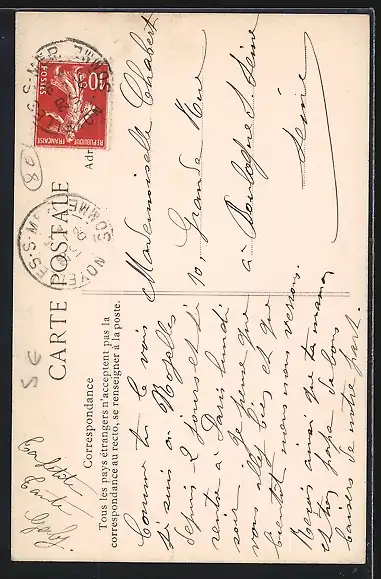 CARTE POSTALE
Correspondance
Tous les pays étrangers n'acceptent pas la
correspondance au recto, se renseigner à la poste.
Adr
RÉPUBLIQUE FRANÇAISE
POSTES
10
NOYE
SOMME
28
5 €
Mademoiselle Chabert
10, Grande Rue
à Boulogne s/ Seine
Seine
Comme tu le vois
je suis à Noyelles
depuis 2 jours et je
rentre à Paris lundi
soir. Je pense que
vous allez bien et que
bientôt nous nous verrons.
Reçois ainsi que ta maman
et ton papa de bons
baisers de notre part.
Ta petite